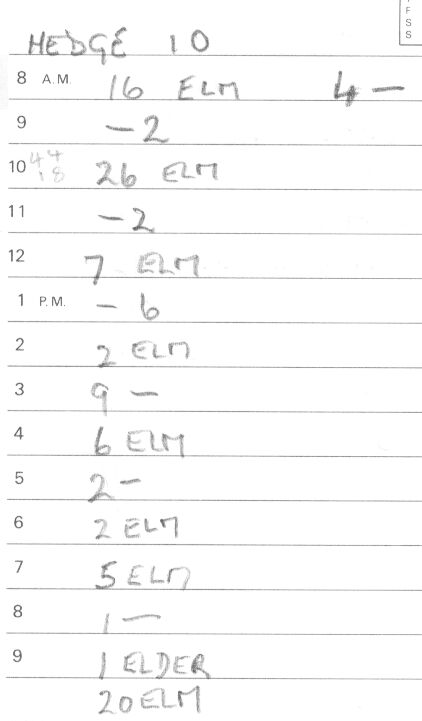 F
S
S
HEDGE 10
8 A.M. 16 ELM 4 —
9 — 2
10 44 18 26 ELM
11 — 2
12 7 ELM
1 P.M. — 6
2 2 ELM
3 9 —
4 6 ELM
5 2 —
6 2 ELM
7 5 ELM
8 1 —
9 1 ELDER
20 ELM